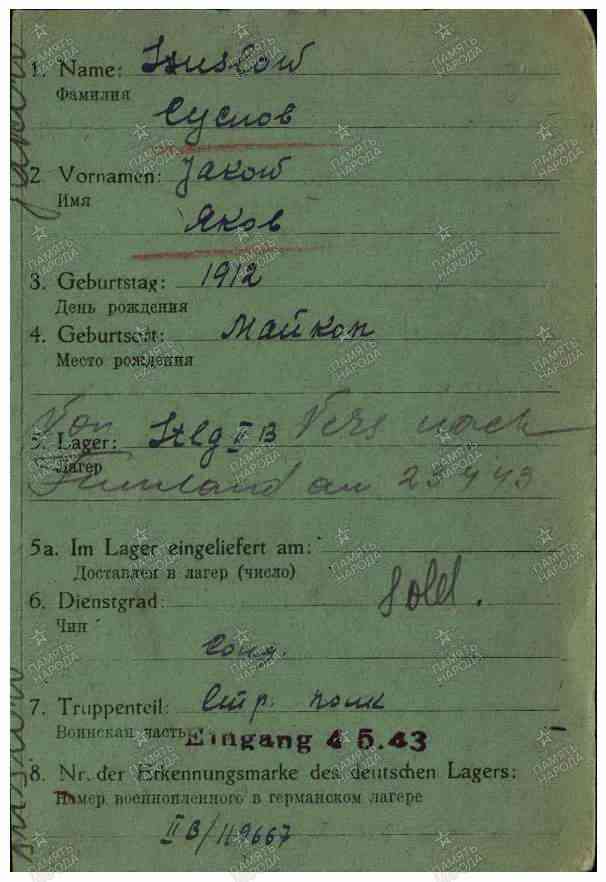 1. Name: Ssuslow
Фамилия
Суслов
2 Vornamen: Jakow
Имя
Яков
3. Geburtstag: 1912
День рождения
4. Geburtsort: Майкоп
Место рождения
Von Vers nach
5. Lager: Stlg II B
Лагер
Finnland am 23 4 43
5a. Im Lager eingeliefert am:
Доставлен в лагер (число)
6. Dienstgrad: Sold.
Чин
Солд.
7. Truppenteil: Стр. полк
Воинская часть
Eingang 4 5.43
8. Nr. der Erkennungsmarke des deutschen Lagers:
Намер военнопленного в германском лагере
II B/119667
ПАМЯТЬ НАРОДА